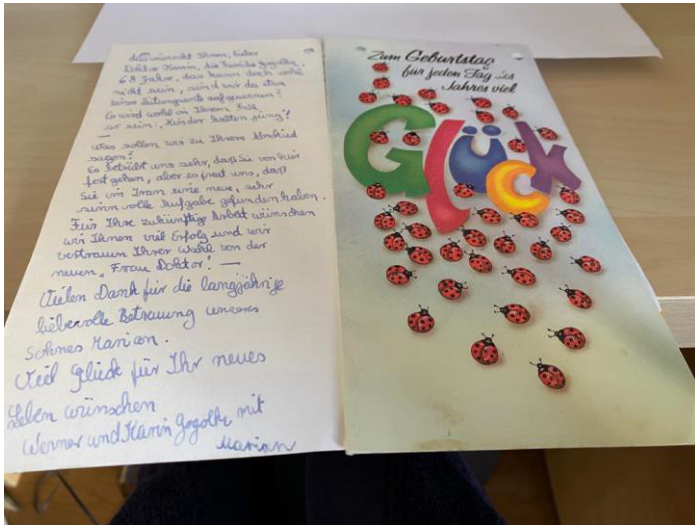 das wünscht Ihnen, lieber
Doktor Karim, die Familie Gogolka.
68 Jahre, das kann doch wohl
nicht sein, sind wir da etwa
aufgesessen?
Es wird wohl in Ihrem Fall
so sein: „Kinder halten jung"!
—
Was sollen wir zu Ihrem Abschied
sagen?
Es betrübt uns sehr, daß Sie von hier
fort gehen, aber es freut uns, daß
Sie im Iran eine neue, sehr
sinnvolle Aufgabe gefunden haben.
Für Ihre zukünftige Arbeit wünschen
wir Ihnen viel Erfolg und wir
vertrauen Ihrer Wahl von der
neuen „Frau Doktor"! —
Vielen Dank für die langjährige
liebevolle Betreuung unseres
Sohnes Marian.
Viel Glück für Ihr neues
Leben wünschen
Werner und Karin mit
Marian
Zum Geburtstag
für jeden Tag des
Jahres viel
Glück